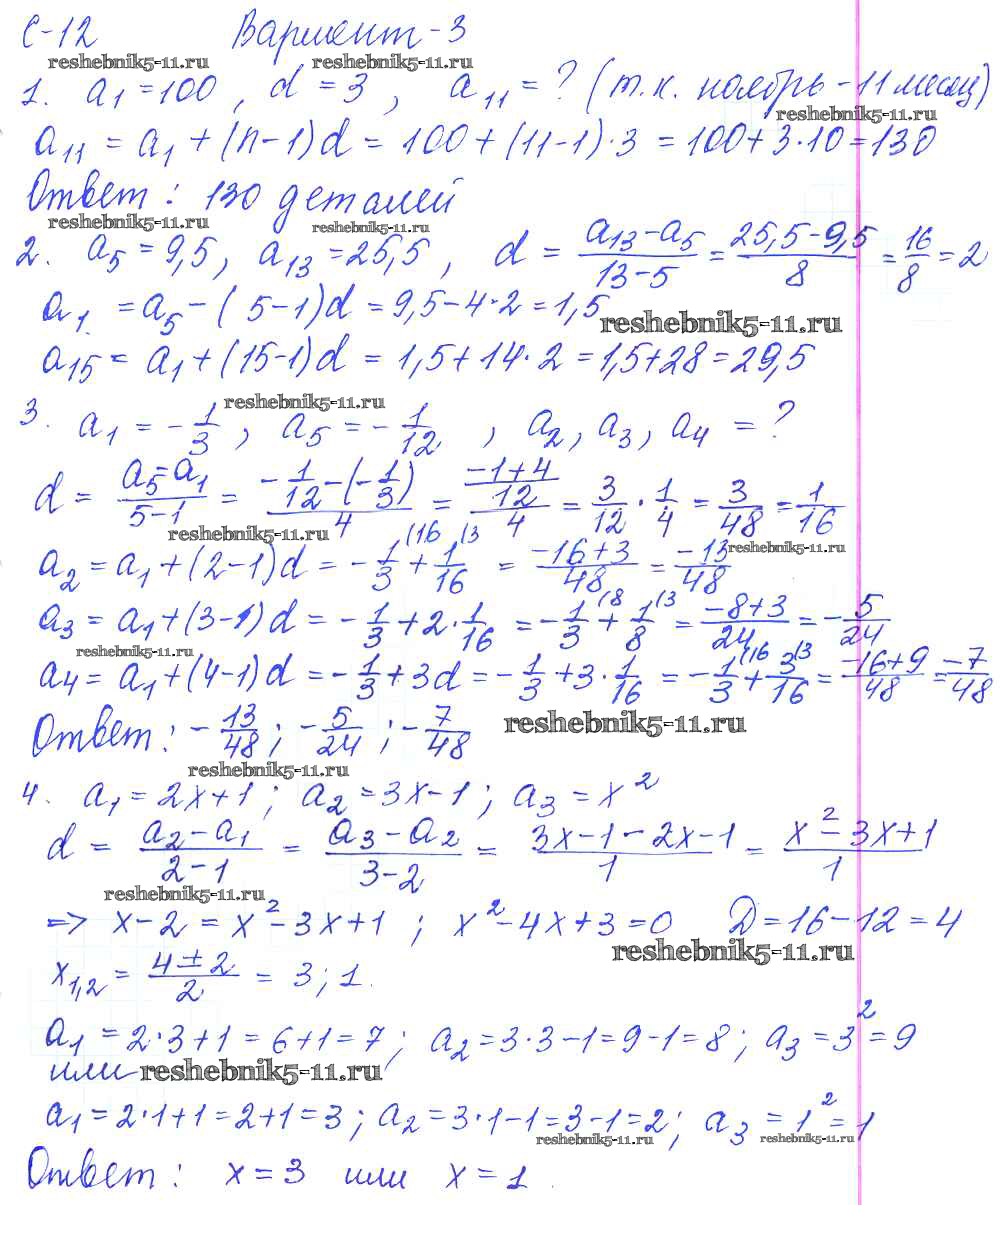 С-12 Вариант-3
reshebnik5-11.ru reshebnik5-11.ru
1. a₁ = 100, d = 3, a₁₁ = ? (т.к. ноябрь - 11 месяц)
reshebnik5-11.ru
a₁₁ = a₁ + (n-1)d = 100 + (11-1)·3 = 100 + 3·10 = 130
Ответ: 130 деталей
reshebnik5-11.ru reshebnik5-11.ru
2. a₅ = 9,5, a₁₃ = 25,5, d = (a₁₃ - a₅)/(13-5) = (25,5 - 9,5)/8 = 16/8 = 2
a₁ = a₅ - (5-1)d = 9,5 - 4·2 = 1,5
reshebnik5-11.ru
a₁₅ = a₁ + (15-1)d = 1,5 + 14·2 = 1,5 + 28 = 29,5
reshebnik5-11.ru
3. a₁ = -1/3, a₅ = -1/12, a₂, a₃, a₄ = ?
d = (a₅ - a₁)/(5-1) = (-1/12 - (-1/3))/4 = ((-1+4)/12)/4 = 3/12 · 1/4 = 3/48 = 1/16
reshebnik5-11.ru reshebnik5-11.ru
a₂ = a₁ + (2-1)d = -1/3 (16 + 1/16 (3 = (-16+3)/48 = -13/48
a₃ = a₁ + (3-1)d = -1/3 + 2·1/16 = -1/3 (8 + 1/8 (3 = (-8+3)/24 = -5/24
reshebnik5-11.ru
a₄ = a₁ + (4-1)d = -1/3 + 3d = -1/3 + 3·1/16 = -1/3 (16 + 3/16 (3 = (-16+9)/48 = -7/48
Ответ: -13/48; -5/24; -7/48
reshebnik5-11.ru
reshebnik5-11.ru
4. a₁ = 2x+1; a₂ = 3x-1; a₃ = x²
d = (a₂ - a₁)/(2-1) = (a₃ - a₂)/(3-2) = (3x-1-2x-1)/1 = (x²-3x+1)/1
reshebnik5-11.ru
=> x-2 = x²-3x+1; x²-4x+3=0 D=16-12=4
reshebnik5-11.ru
x₁,₂ = (4±2)/2 = 3; 1.
a₁ = 2·3+1 = 6+1 = 7; a₂ = 3·3-1 = 9-1 = 8; a₃ = 3² = 9
или reshebnik5-11.ru
a₁ = 2·1+1 = 2+1 = 3; a₂ = 3·1-1 = 3-1 = 2; a₃ = 1² = 1
reshebnik5-11.ru reshebnik5-11.ru
Ответ: x = 3 или x = 1.